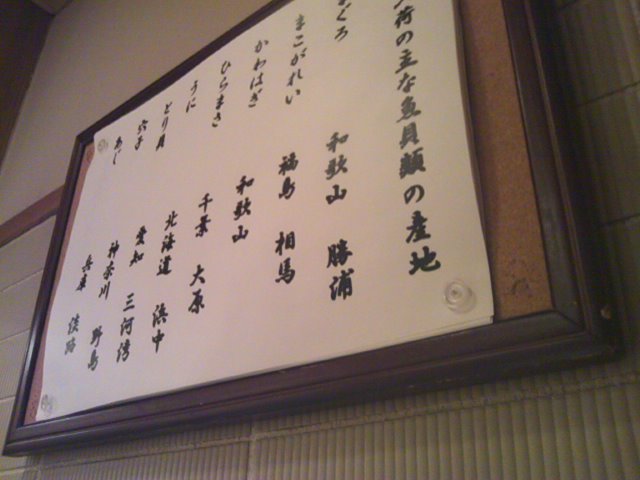 荷の主な魚貝類の産地
まぐろ 和歌山 勝浦
まこがれい 福島 相馬
かわはぎ 和歌山
ひらまさ 千葉 大原
うに 北海道 浜中
とり貝 愛知 三河湾
穴子 神奈川 野島
あじ 兵庫 淡路